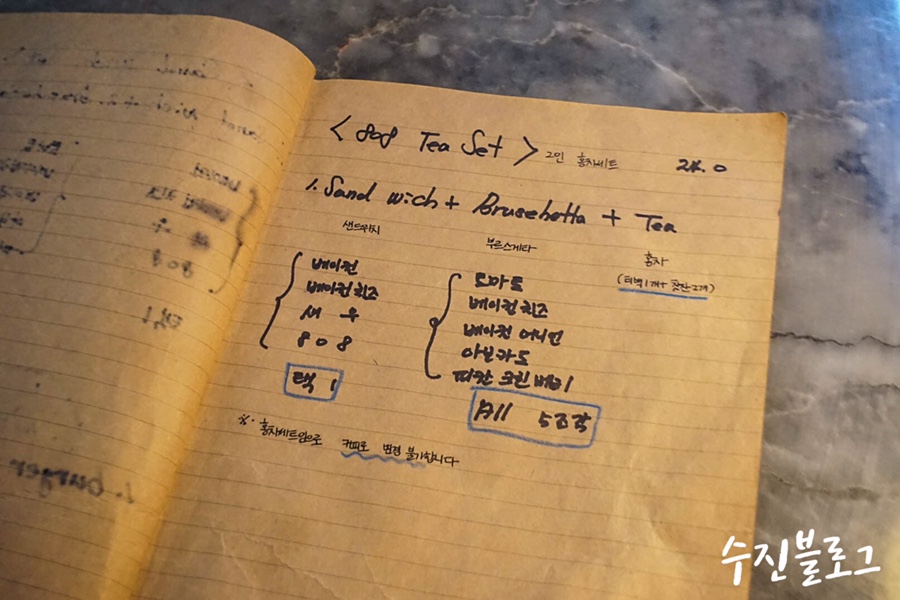 < 808 Tea Set > 2인 홍차세트 24.0
1. Sand wich + Bruschetta + Tea
샌드위치 부르스게타 홍차
(티백1개+찻잔2개)
베이컨
베이컨치즈
새우
808
택 1
토마토
베이컨치즈
베이컨 어니언
아보카도
피칸 크린베리
All 5조각
※. 홍차세트임으로 커피로 변경 불가합니다
수진블로그